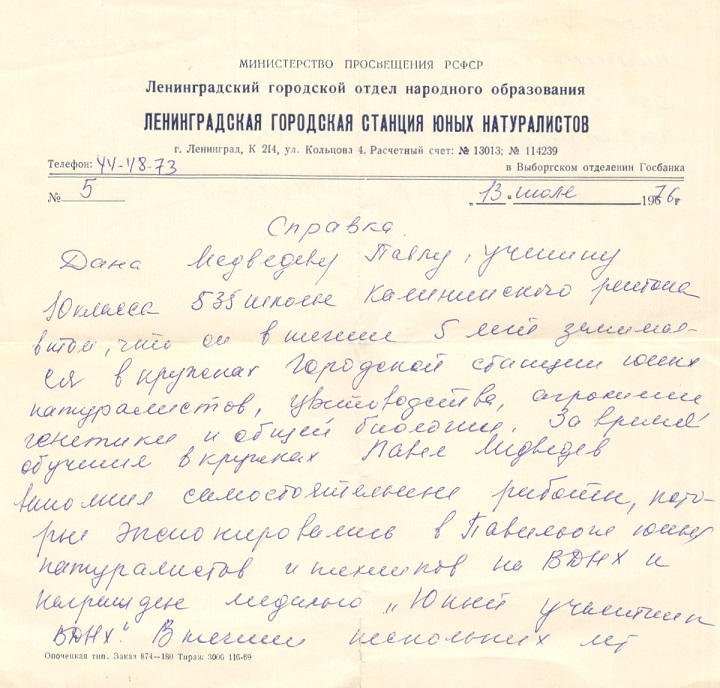 МИНИСТЕРСТВО ПРОСВЕЩЕНИЯ РСФСР
Ленинградский городской отдел народного образования
ЛЕНИНГРАДСКАЯ ГОРОДСКАЯ СТАНЦИЯ ЮНЫХ НАТУРАЛИСТОВ
г. Ленинград, К 214, ул. Кольцова 4. Расчетный счет: № 13013; № 114239
Телефон: 44-48-73 в Выборгском отделении Госбанка
№ 5 „13 " июле 1976 г
Справка.
Дана Медведеву Павлу, ученику
10 класса 535 школы Калининского района
в том, что он в течении 5 лет занимал-
ся в кружках Городской станции юных
натуралистов, цветоводства, агрохимии
генетики и общей биологии. За время
обучения в кружках Павел Медведев
выполнил самостоятельные работы, кото-
рые экспонировались в Павильоне юных
натуралистов и техников на ВДНХ и
награжден медалью „Юный участник
ВДНХ". В течении нескольких лет
Опочецкая тип. Заказ 874—180 Тираж 3000 116-69